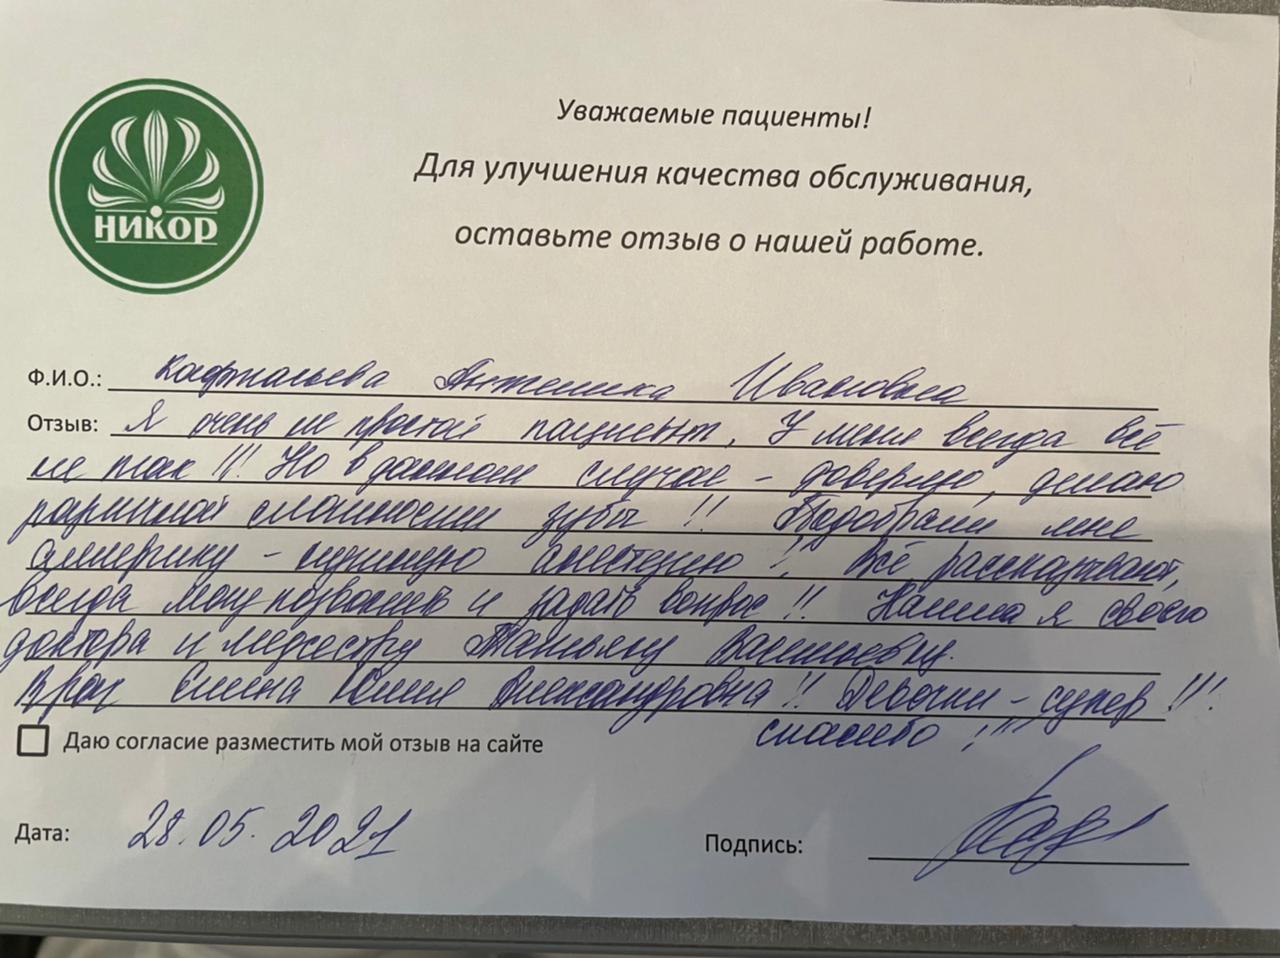 НИКОР
Уважаемые пациенты!
Для улучшения качества обслуживания,
оставьте отзыв о нашей работе.
Ф.И.О.: Ивановна
Отзыв: Я очень не простой пациент, У меня всегда всё
не так !!! Но в данном случае - доверяю, делаю
различной сложности зубы !! Подобрали мне
нужную анестезию ! Всё рассказывают,
всегда могу и задать вопрос !! Нашла я своего
доктора и медсестру Татьяну Васильевну.
Врач Елена Юлия Александровна !! Девочки - супер !!!
спасибо !!!
Даю согласие разместить мой отзыв на сайте
Дата: 28.05.2021
Подпись: